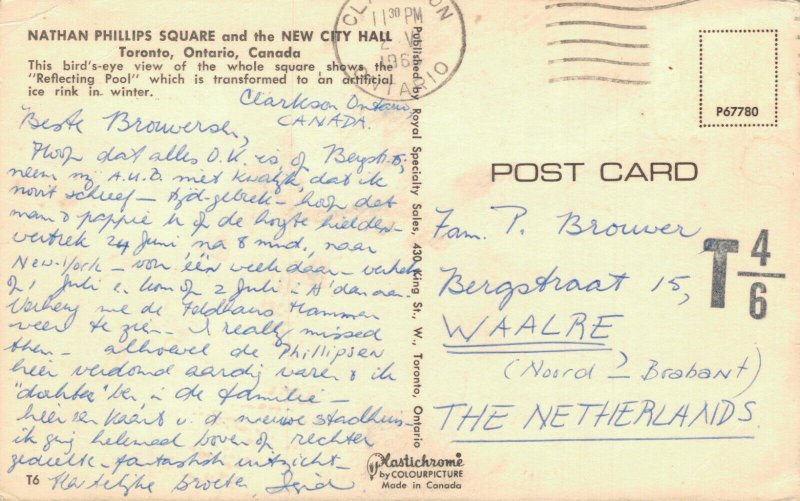 NATHAN PHILLIPS SQUARE and the NEW CITY HALL
Toronto, Ontario, Canada
This bird's-eye view of the whole square shows the
"Reflecting Pool" which is transformed to an artificial
ice rink in winter.
Clarkson Ontario,
CANADA.
Beste Brouwersen,
Hoop dat alles O.K. is, op Bergstr. 15,
neem mij A.U.B. niet kwalijk, dat ik
nooit schreef - tijd-gebrek - hoop dat
mam & pappie U op de hoogte hielden -
vertrek 24 Juni, na 8 mnd, naar
New-York - voor één week daar - vertrek
op 1 Juli e. kom op 2 Juli i. A'dam aan.
Verheug me de
weer te zien. I really missed
them - alhoewel de Phillipsen
heel aardig waren & ik
"dochter" ben in de familie -
hier een kaart v. d. nieuwe stadhuis
ik ging helemaal boven op rechter
gedeelte - fantastisch uitzicht -
Hartelijke Groeten
T6
11 30 PM
ONTARIO
Published by Royal Specialty Sales, 430 King St., W., Toronto, Ontario
Plastichrome
by COLOURPICTURE
Made in Canada
P67780
POST CARD
Fam. P. Brouwer
Bergstraat 15,
WAALRE
(Noord - Brabant)
THE NETHERLANDS.
T 4/6